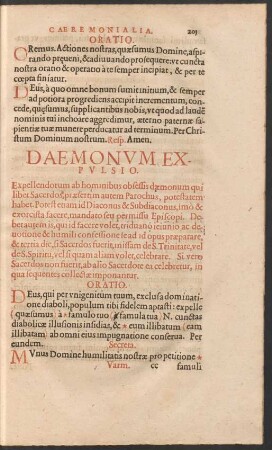 CAEREMONIALIA. 203
ORATIO.
ORemus. Actiones nostras, quæsumus Domine, aspi
rando preueni, & adiuuando prosequere: vt cuncta
nostra oratio & operatio à te semper incipiat, & per te
cœpta finiatur.
DEus, à quo omne bonum sumit initium, & semper
ad potiora progrediens accipit incrementum, con-
cede, quęsumus, supplicantibus nobis, vt quod ad laudē
nominis tui inchoare aggredimur, æterno paternæ sa-
pientiæ tuæ munere perducatur ad terminum. Per Chri
stum Dominum nostrum. Resp. Amen.
DAEMONVM EX-
PVLSIO.
Expellendorum ab hominibus obsessis dæmonum qui
libet Sacerdos, præsertim autem Parochus, potestatem
habet. Potest enim id Diaconus & Subdiaconus, imò &
exorcista facere, mandato seu permissu Episcopi. De-
bet autem is, qui id facere volet, triduano ieiunio ac de-
uotione & humili confessione se ad id opus præparare,
& tertia die, si Sacerdos fuerit, missam de S. Trinitate, vel
de S. Spiritu, vel si quam aliam volet, celebrare. Si vero
Sacerdos non fuerit, ab alio Sacerdote ea celebretur, in
qua sequentes collectæ imponantur.
ORATIO.
DEus, qui per vnigenitum tuum, exclusa dominatione
diaboli, populum tibi fidelem aptasti: expelle
(quæsumus à * famulo tuo (* famula tua) N. cunctas
diabolicæ illusionis insidias, & * eum illibatum (eam
illibatam) ab omni eius impugnatione conserua. Per
eundem.
Secreta.
MVnus Domine humilitatis nostræ pro petitione *
Varm. cc famuli